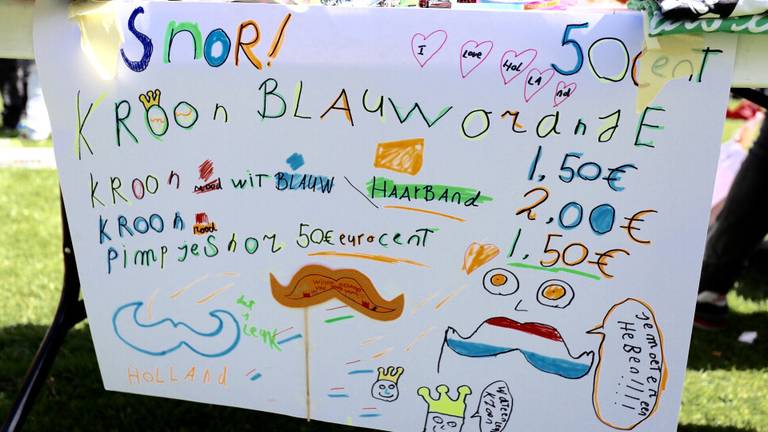 SnOR! 50CENT
I Love HoL LA nd
KROOn BLAUW OranJE 1,50€
KROOn rood wiT BLAUW HAARBAND 2,00€
KROOn Rood
pimp jeSnor 50€eurocent 1,50€
HOLLAnd
Leuk
Je moet er een HeBen!!!!